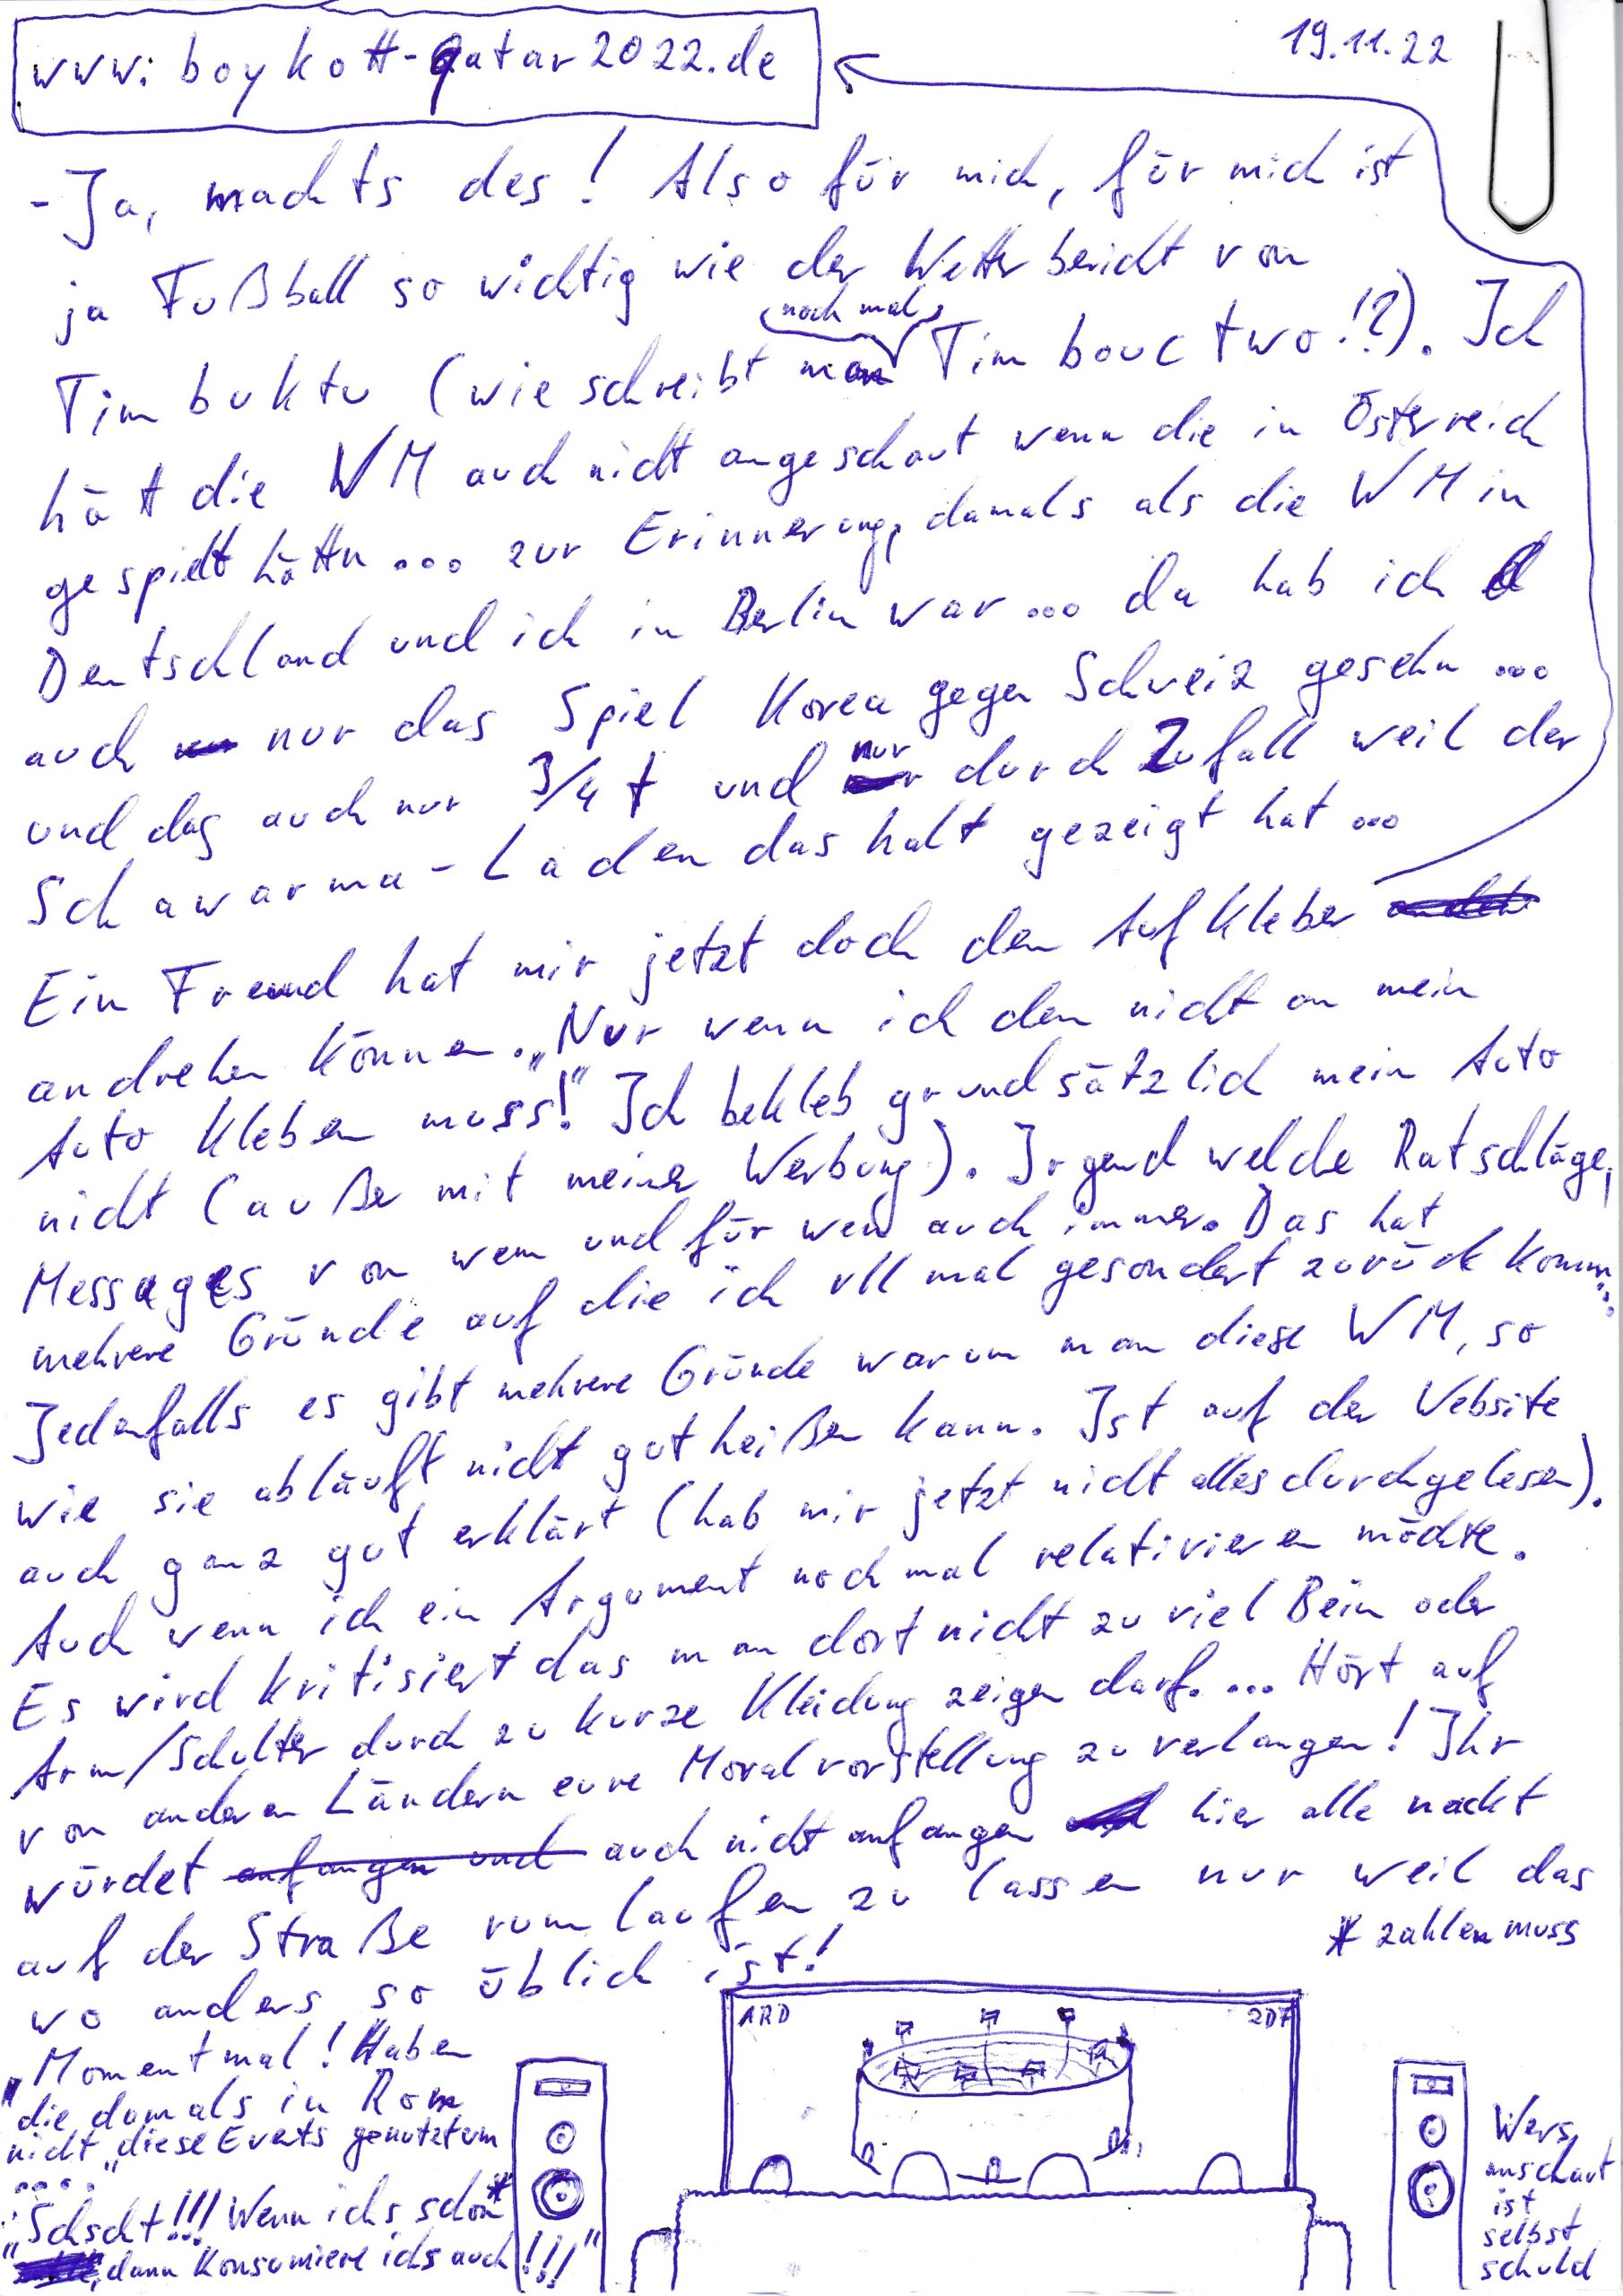 www.boykott-qatar2022.de
19.11.22
- Ja, machts des! Also für mich, für mich ist
ja Fußball so wichtig wie der Wetterbericht von
Timbuktu (wie schreibt man noch mal Timbouctwo!?). Ich
hät die WM auch nicht angeschaut wenn die in Österreich
gespielt hättn ... zur Erinnerung, damals als die WM in
Deutschland und ich in Berlin war ... da hab ich
auch nur das Spiel Korea gegen Schweiz gesehn ...
und das auch nur 3/4 t und nur durch Zufall weil der
Schawarma-Laden das halt gezeigt hat ...
Ein Freund hat mir jetzt doch den Aufkleber
andrehen können. „Nur wenn ich den nicht an mein
Auto kleben muss!" Ich bekleb grundsätzlich mein Auto
nicht (außer mit meiner Werbung). Irgend welche Ratschläge,
Messages von wem und für wen auch immer. Das hat
mehrere Gründe auf die ich vll mal gesondert zurück komm...
Jedenfalls es gibt mehrere Gründe warum man diese WM, so
wie sie abläuft nicht gut heißen kann. Ist auf der Website
auch ganz gut erklärt (hab mir jetzt nicht alles durchgelesen).
Auch wenn ich ein Argument noch mal relativieren möchte.
Es wird kritisiert das man dort nicht zu viel Bein oder
Arm/Schulter durch zu kurze Kleidung zeigen darf. ... Hört auf
von anderen Ländern eure Moralvorstellung zu verlangen! Ihr
würdet auch nicht anfangen hier alle nackt
auf der Straße rum laufen zu lassen nur weil das
wo anders so üblich ist!
* zahlen muss
„Moment mal! Haben
die damals in Rom
nicht diese Events genutzt um
...."
„Schscht!!! Wenn ichs schon*
, dann konsumiere ichs auch!!!"
ARD
ZDF
Wers
anschaut
ist
selbst
schuld